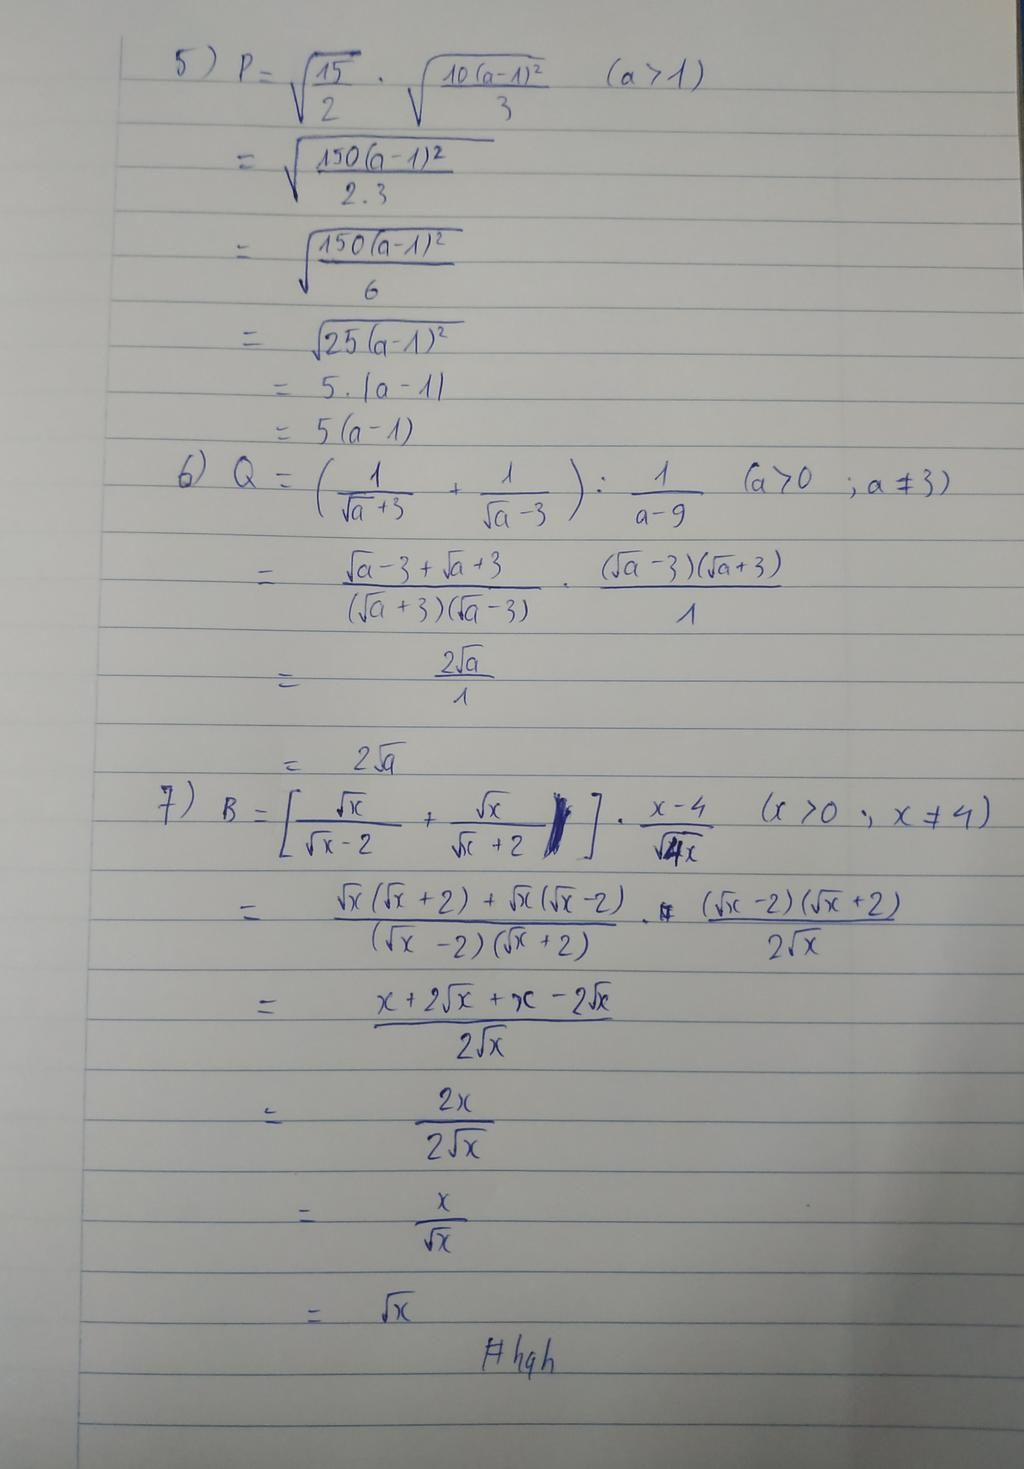 5) P = √(15/2) . √(10(a-1)²/3) (a > 1)
= √(150(a-1)²/2.3)
= √(150(a-1)²/6)
= √25(a-1)²
= 5.|a-1|
= 5(a-1)
6) Q = (1/(√a+3) + 1/(√a-3)) : 1/(a-9) (a>0 ; a ≠ 3)
= (√a-3+√a+3)/((√a+3)(√a-3)) . ((√a-3)(√a+3))/1
= 2√a/1
= 2√a
7) B = [√x/(√x-2) + √x/(√x+2)] . (x-4)/√4x (x>0 ; x ≠ 4)
= (√x(√x+2)+√x(√x-2))/((√x-2)(√x+2)) . ((√x-2)(√x+2))/2√x
= (x+2√x+x-2√x)/2√x
= 2x/2√x
= x/√x
= √x
#hqh